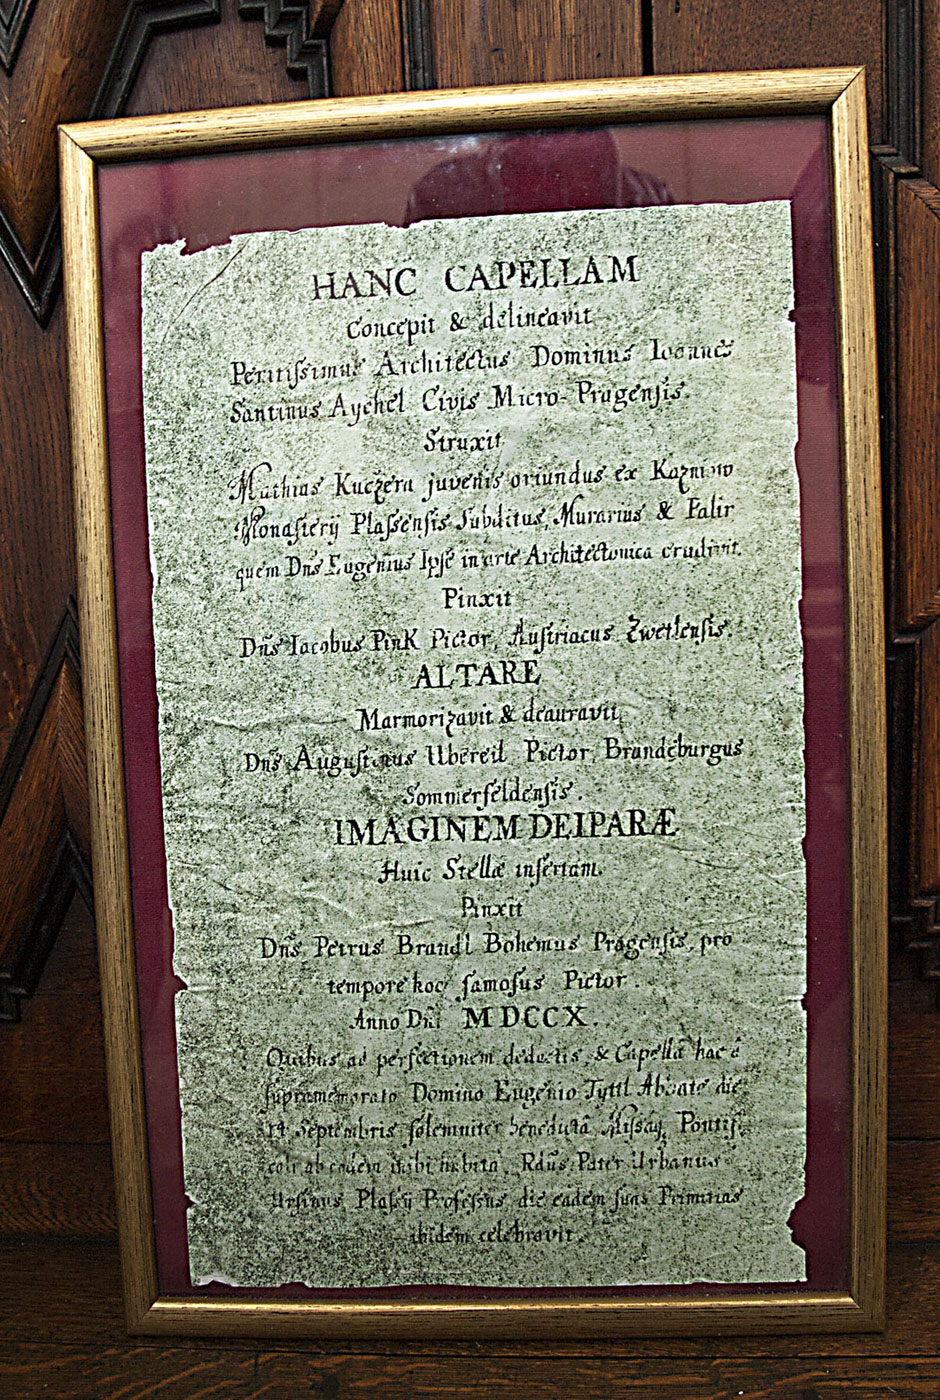 HANC CAPELLAM
Concepit & delineavit
Peritiſsimus Architectus Dominus Ioannes
Santinus Aychel Civis Micro-Pragenſis.
Struxit
Mathias Kuczera juvenis oriundus ex Kaznıow
Monaſterÿ Plaſsenſis Subditus, Murarius & Palir
quem Dn̄s Eugenius Ipſe in arte Architectonica erudivit.
Pinxit
Dn̄s Iacobus Pink Pictor, Auſtriacus Zwetlenſis.
ALTARE
Marmorizavit & deauravit
Dn̄s Auguſtinus Ubereil Pictor Brandeburgus
Sommerfeldenſis.
IMAGINEM DEIPARÆ
Huic Stellæ inſertam.
Pinxit
Dn̄s Petrus Brandl Bohemus Pragenſis, pro
tempore hoc famoſus Pictor.
Anno Dn̄i MDCCX.
Quibus ad perfectionem deductis, & Capella hac à
ſupramemorato Domino Eugenio Tyttl Abbate die
14 Septembris ſolemniter benedicta Missaq; Pontiſi
cali ab eodem inibi habita, Rdus Pater Urbanus
Urſinus Plaſsÿ Profeſsus die eadem ſuas Primitias
ibidem celebravit.